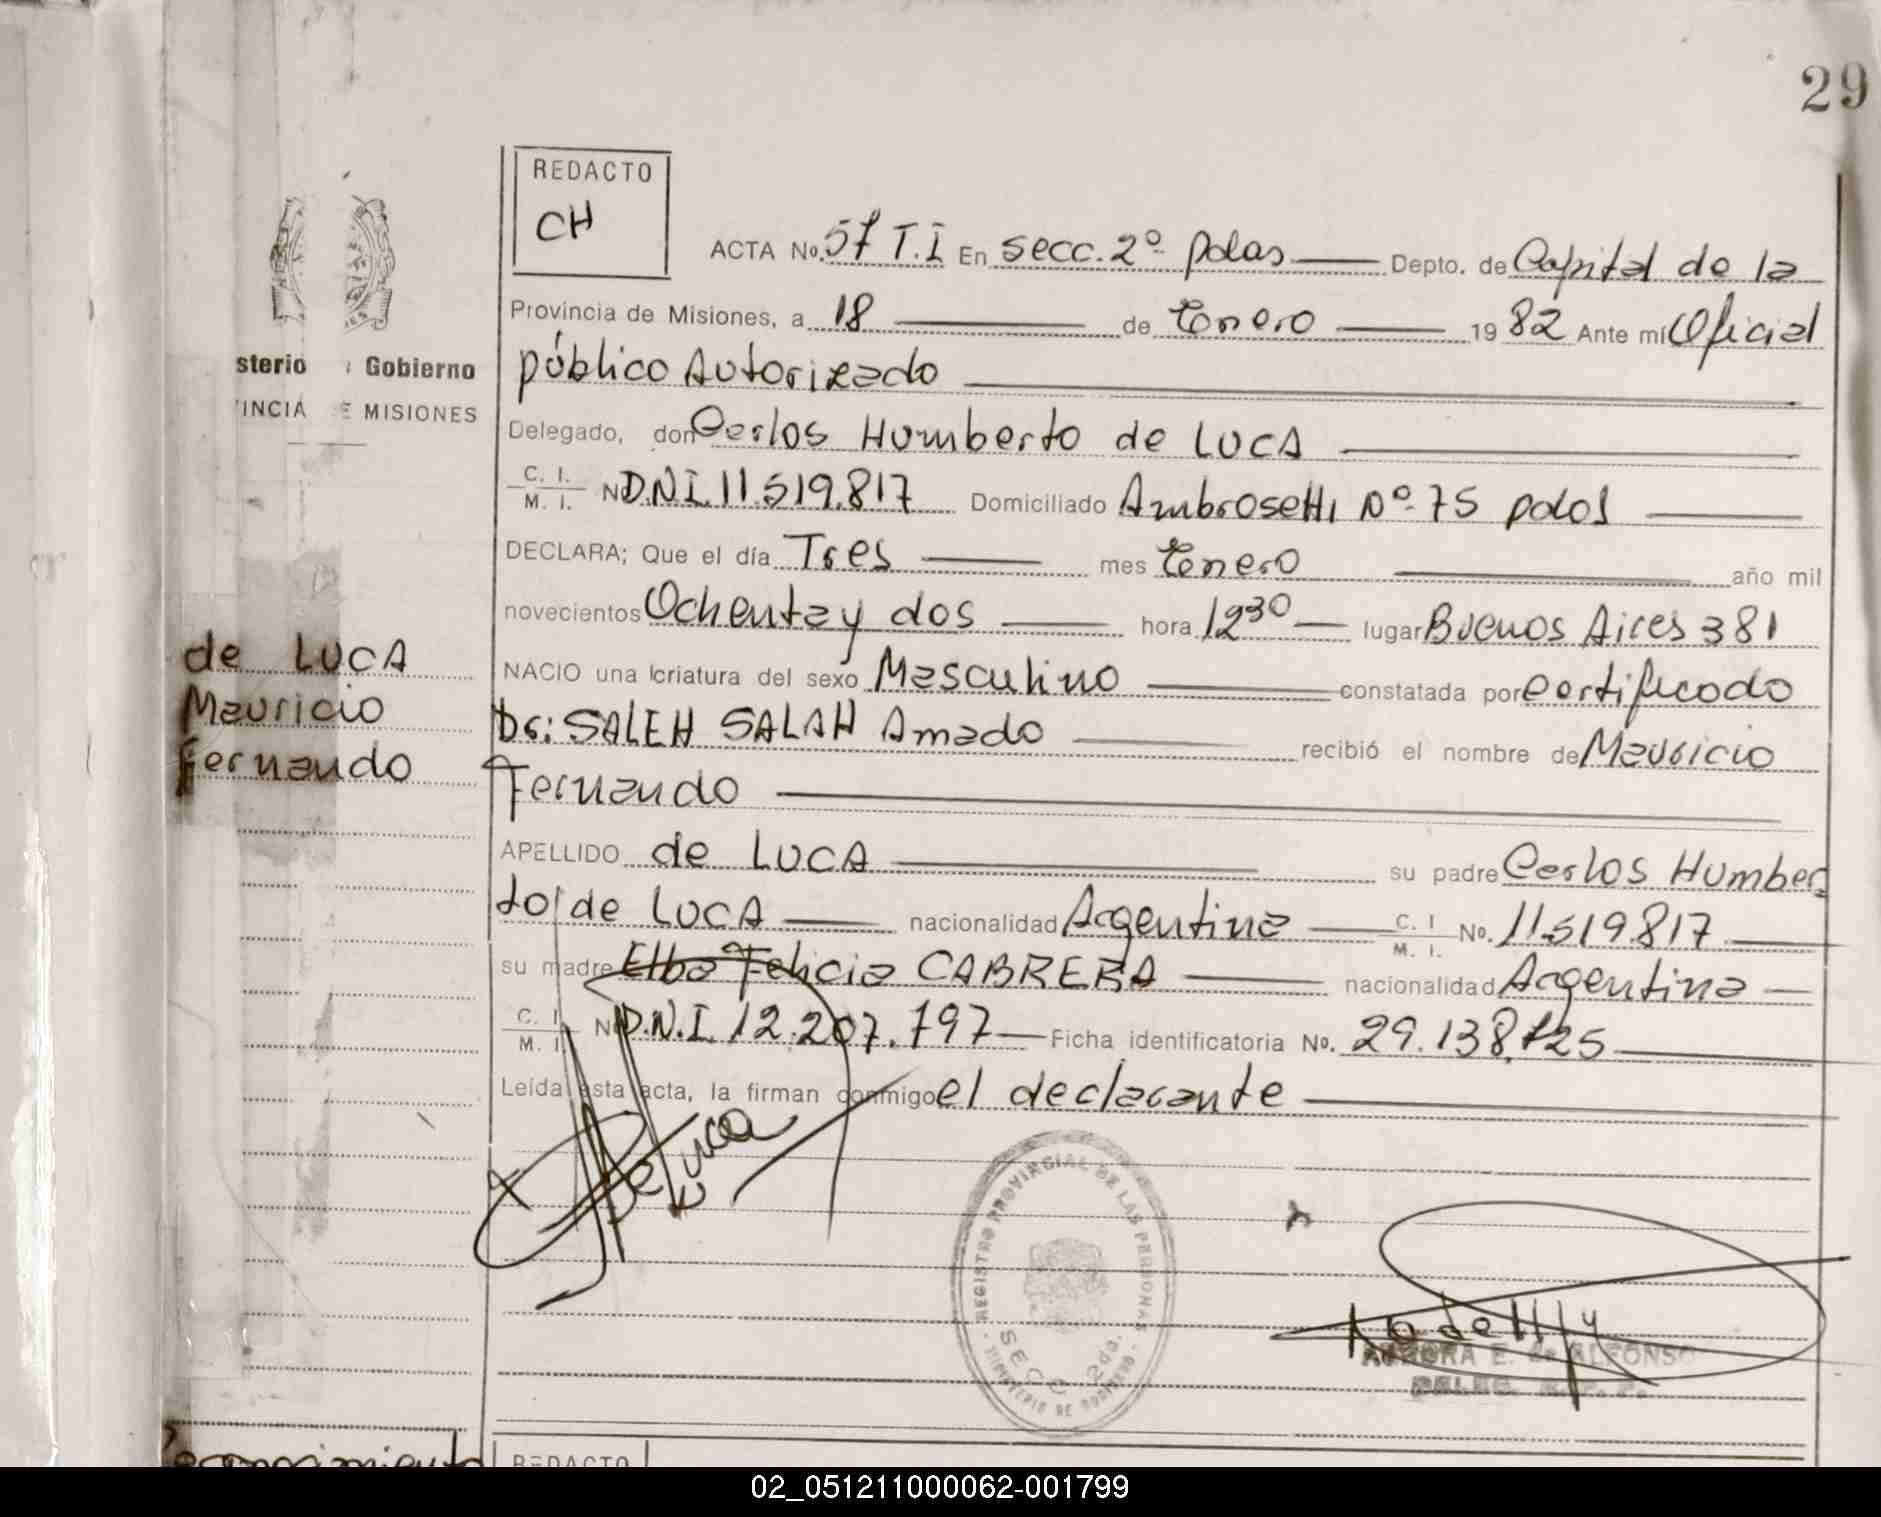 29
REDACTO
CH
ACTA No. 57 T.I En secc. 2º Pdas Depto. de Capital de la
Provincia de Misiones, a 18 de Enero 1982 Ante mí Oficial
sterio Gobierno
público Autorizado
INCIA E MISIONES
Delegado, don Carlos Humberto de LUCA
C. I. M. I. No D.N.I. 11.519.817 Domiciliado Ambrosetti Nº 75 pdas
DECLARA; Que el día Tres mes Enero año mil
novecientos Ochenta y dos hora 12 30 lugar Buenos Aires 381
de LUCA
NACIO una criatura del sexo Masculino constatada por certificado
Mauricio
Dr: SALEH SALAH Amado recibió el nombre de Mauricio
Fernando
Fernando
APELLIDO de LUCA su padre Carlos Humber
to de LUCA nacionalidad Argentina C. I. M. I. No. 11.519.817
su madre Elba Felicia CABRERA nacionalidad Argentina
C. I. M. I. No D.N.I. 12.207.797 Ficha identificatoria No. 29.138.725
Leída esta acta, la firman conmigo el declarante
de Luca
REGISTRO PROVINCIAL DE LAS PERSONAS
SECC 2da.
MINISTERIO DE GOBIERNO
AURORA E. de ALFONSO
DELEG. R. P. P.
Reconocimiento
REDACTO
02_051211000062-001799